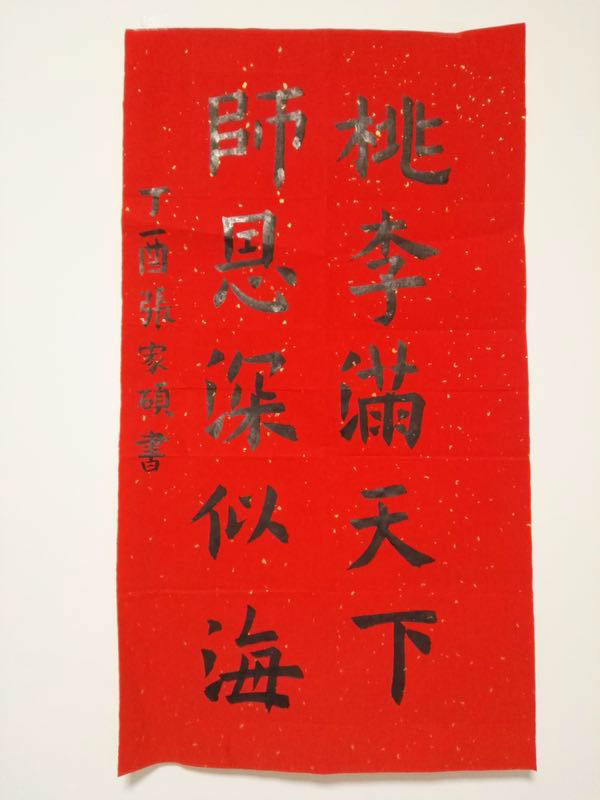 桃李滿天下
師恩深似海
丁酉張家碩書